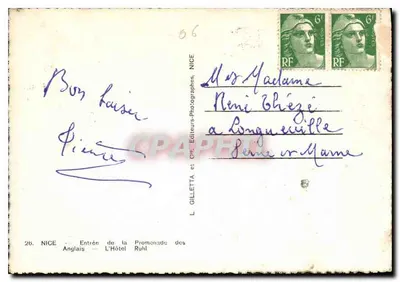 06
6F
RF
6F
RF
Bon baiser
Pierre
Mr Madame
René Thézé
a Longueville
Seine et Marne
L. GILLETTA et Cie, Editeurs-Photographes, NICE
26. NICE — Entrée de la Promenade des
Anglais — L'Hôtel Ruhl
CPAPHIL